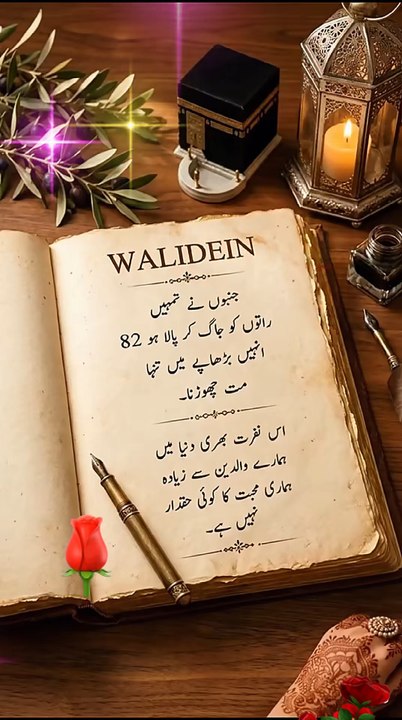 WALIDEIN
جنہوں نے تمہیں
راتوں کو جاگ کر پالا ہو 82
انہیں بڑھاپے میں تنہا
مت چھوڑنا۔
اس نفرت بھری دنیا میں
ہمارے والدین سے زیادہ
ہماری محبت کا کوئی حقدار
نہیں ہے۔